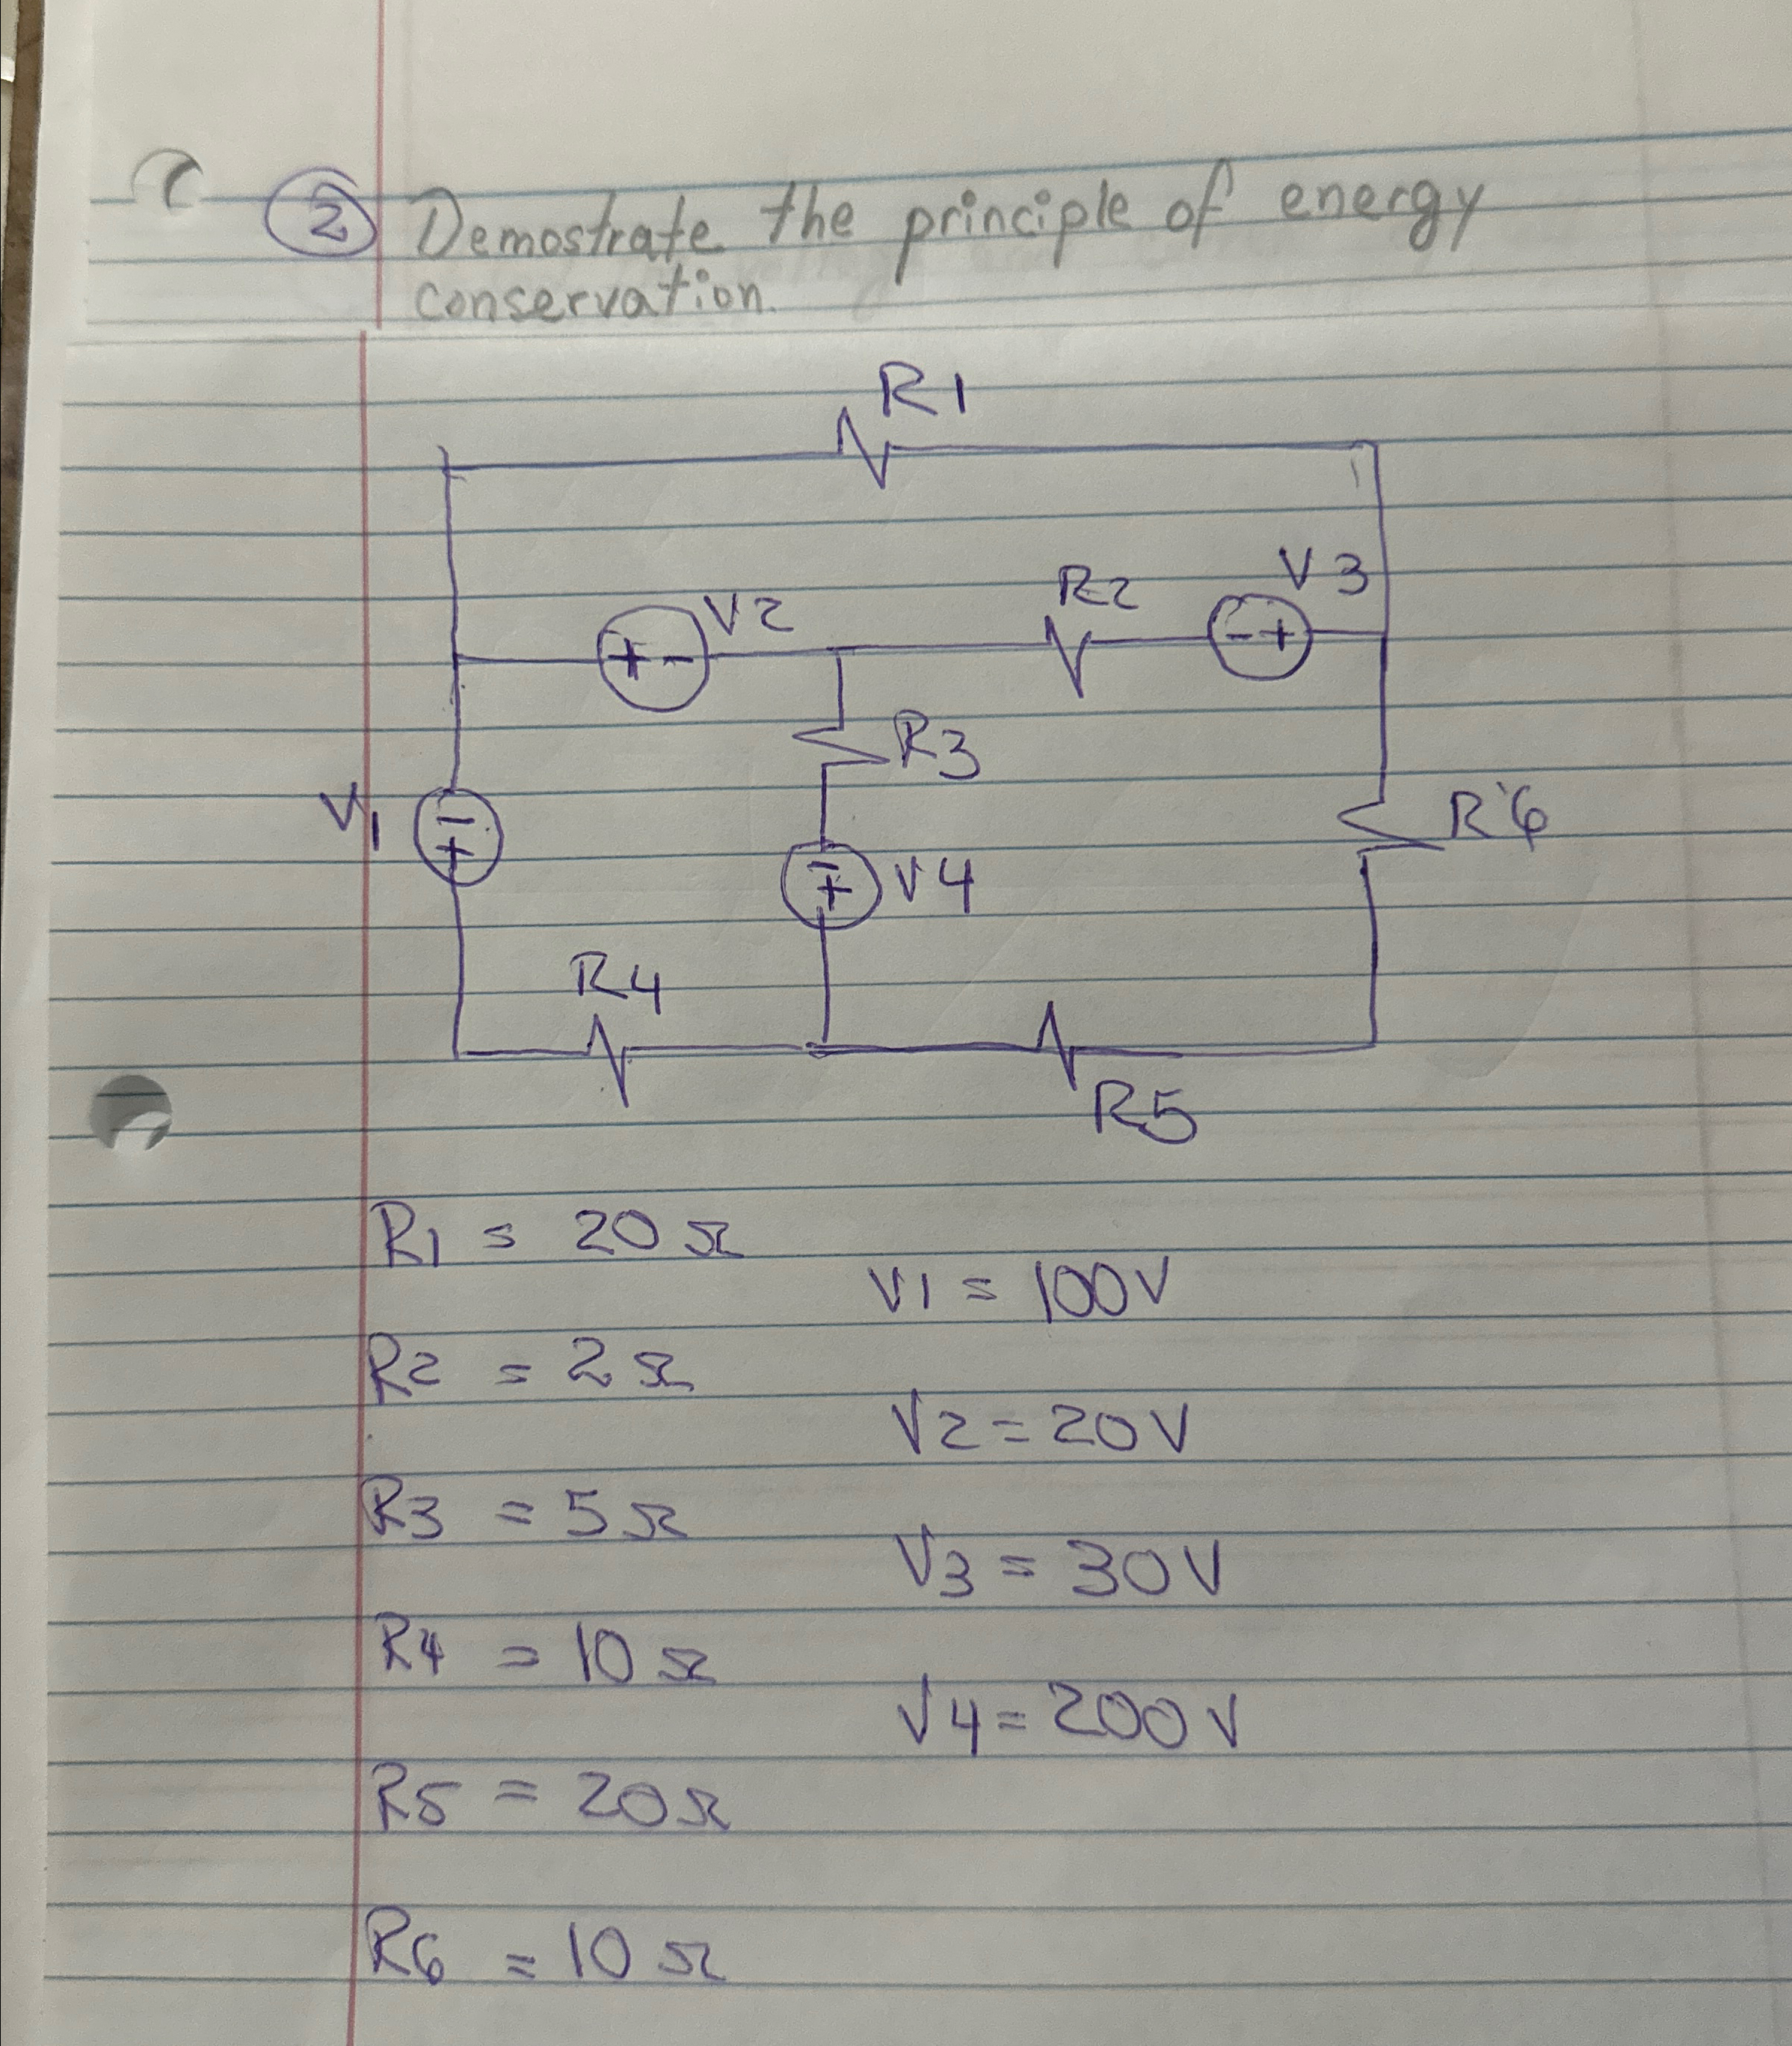 2 Demostrate the principle of energy
conservation.
R1
V2 R2 - + V3
+ -
R3
V1 - + R6
- + V4
R4
R5
R1 = 20 Ω
V1 = 100V
R2 = 2 Ω
V2 = 20V
R3 = 5 Ω
V3 = 30V
R4 = 10 Ω
V4 = 200V
R5 = 20 Ω
R6 = 10 Ω